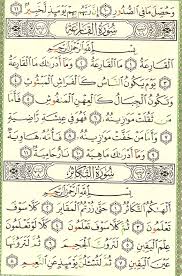 وَحُصِّلَ مَا فِي ٱلصُّدُورِ ١٠ إِنَّ رَبَّهُم بِهِمْ يَوْمَئِذٍ لَّخَبِيرٌ ١١
سُورَةُ القَارِعَةِ
بِسْمِ ٱللَّهِ ٱلرَّحْمَٰنِ ٱلرَّحِيمِ
ٱلْقَارِعَةُ ١ مَا ٱلْقَارِعَةُ ٢ وَمَآ أَدْرَىٰكَ مَا ٱلْقَارِعَةُ ٣
يَوْمَ يَكُونُ ٱلنَّاسُ كَٱلْفَرَاشِ ٱلْمَبْثُوثِ ٤
وَتَكُونُ ٱلْجِبَالُ كَٱلْعِهْنِ ٱلْمَنفُوشِ ٥
فَأَمَّا مَن ثَقُلَتْ مَوَٰزِينُهُۥ ٦ فَهُوَ فِي عِيشَةٍ رَّاضِيَةٍ ٧
وَأَمَّا مَنْ خَفَّتْ مَوَٰزِينُهُۥ ٨ فَأُمُّهُۥ هَاوِيَةٌ ٩
وَمَآ أَدْرَىٰكَ مَا هِيَهْ ١٠ نَارٌ حَامِيَةٌۢ ١١
سُورَةُ التَّكَاثُرِ
بِسْمِ ٱللَّهِ ٱلرَّحْمَٰنِ ٱلرَّحِيمِ
أَلْهَىٰكُمُ ٱلتَّكَاثُرُ ١ حَتَّىٰ زُرْتُمُ ٱلْمَقَابِرَ ٢ كَلَّا سَوْفَ
تَعْلَمُونَ ٣ ثُمَّ كَلَّا سَوْفَ تَعْلَمُونَ ٤ كَلَّا لَوْ تَعْلَمُونَ
عِلْمَ ٱلْيَقِينِ ٥ لَتَرَوُنَّ ٱلْجَحِيمَ ٦ ثُمَّ لَتَرَوُنَّهَا
عَيْنَ ٱلْيَقِينِ ٧ ثُمَّ لَتُسْـَٔلُنَّ يَوْمَئِذٍ عَنِ ٱلنَّعِيمِ ٨